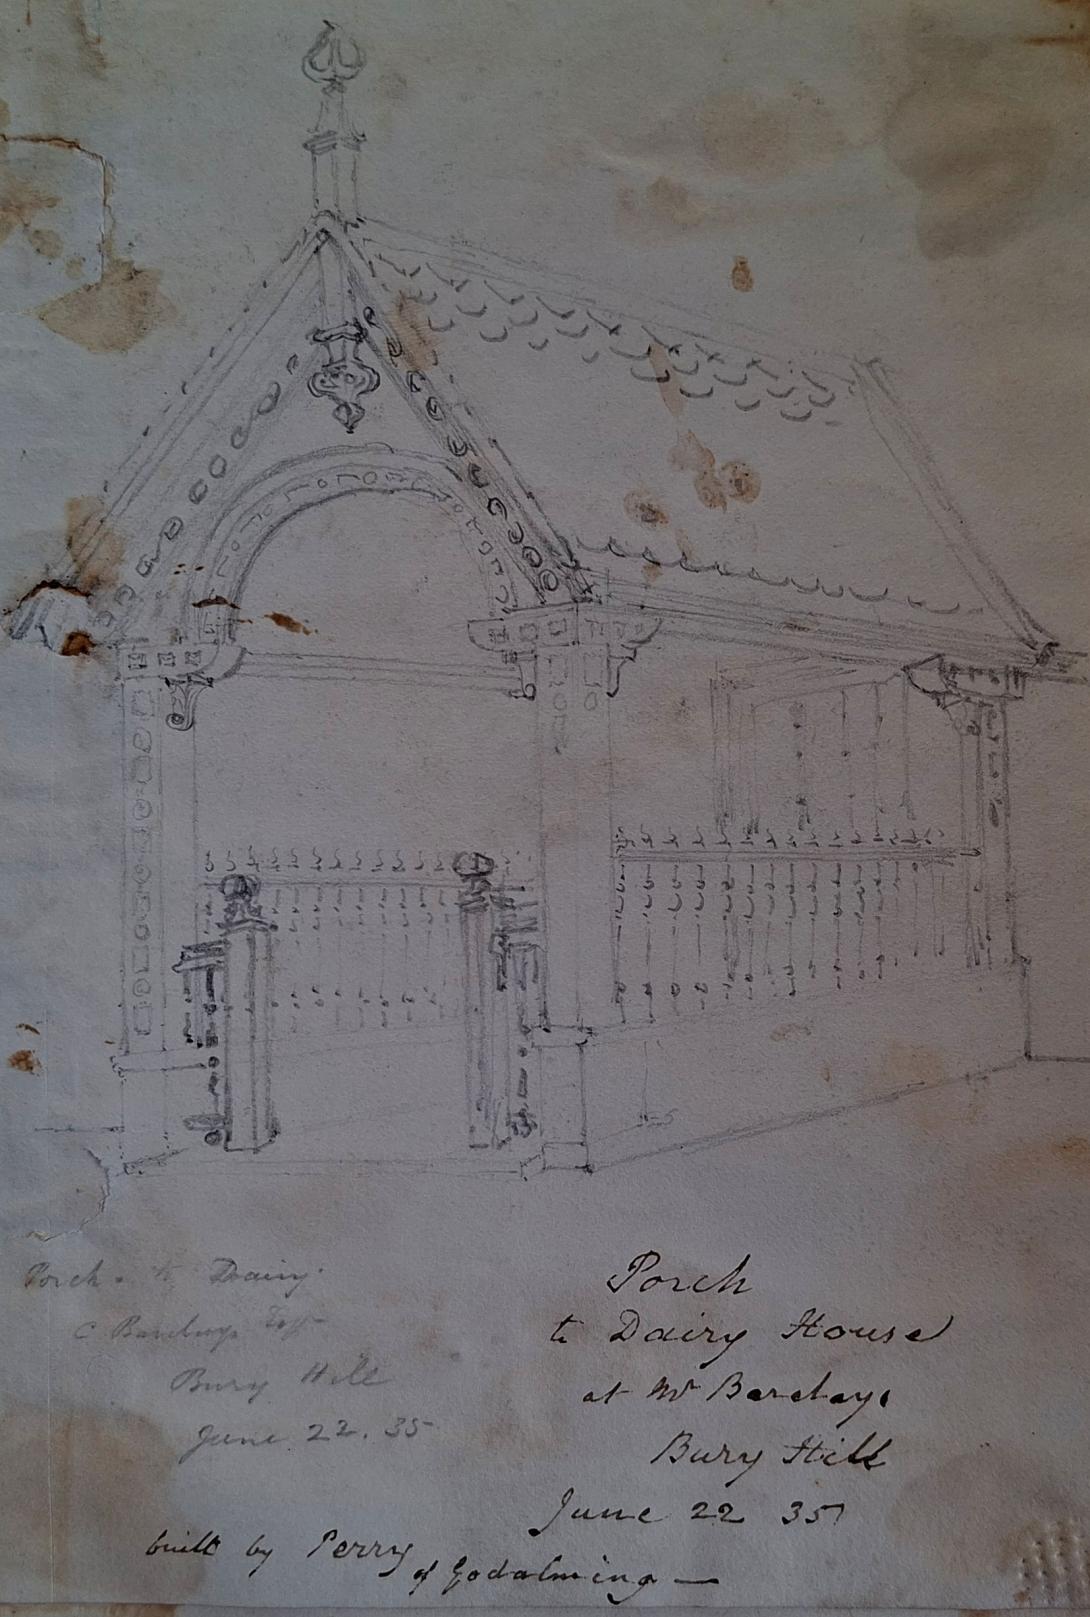 Porch to Dairy
C Barclay Esqr
Bury Hill
June 22. 35
Porch
to Dairy House
at Mr Barclays
Bury Hill
June 22 35
built by Perry
of Godalming —